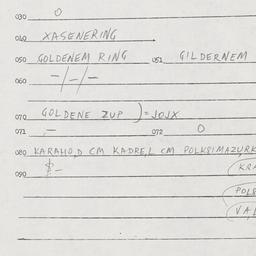 030 0
040 XASENERING
050 GOLDENEM RING 051 GILDERNEM
060 -/-/-
070 GOLDENE ZUP )= JOJX
071 - 072 0
080 KARAHO,D CM KADRE,L CM POLKSIMAZURK
090
KRA
POLS
VA,L